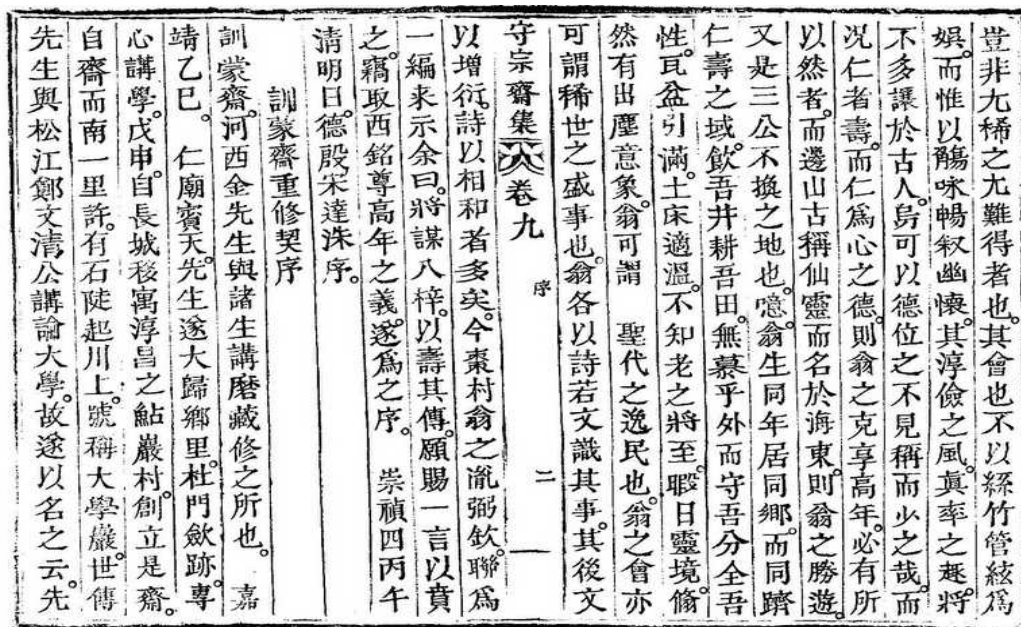 豈非尢稀之尢難得者也。其會也不以絲竹管絃爲
娛。而惟以觴咏暢叙幽懷。其淳儉之風。眞率之趣。將
不多讓於古人。曷可以德位之不見稱而少之哉。而
况仁者壽。而仁爲心之德。則翁之克享高年。必有所
以然者。而邊山古稱仙靈而名於海東。則翁之勝遊。
又是三公不換之地也。噫。翁生同年居同鄕。而同躋
仁壽之域。飮吾井耕吾田。無慕乎外而守吾分全吾
性。瓦盆引滿。土床適溫。不知老之將至。暇日靈境。翛
然有出塵意象。翁可謂 聖代之逸民也。翁之會亦
可謂稀世之盛事也。翁各以詩若文識其事。其後文
守宗齋集 卷九 序 二
以增衍。詩以相和者多矣。今棗村翁之胤弼欽。聯爲
一編來示余曰。將謀入梓。以壽其傳。願賜一言以賁
之。竊取西銘尊高年之義。遂爲之序。 崇禎四丙午
淸明日。德殷宋達洙序。
訓蒙齋重修契序
訓蒙齋。河西金先生與諸生講磨藏修之所也。 嘉
靖乙巳。 仁廟賓天。先生遂大歸鄕里。杜門斂跡。專
心講學。戊申。自長城移寓淳昌之鮎巖村。創立是齋。
自齋而南一里許。有石陡起川上。號稱大學巖。世傳
先生與松江鄭文淸公講論大學。故遂以名之云。先